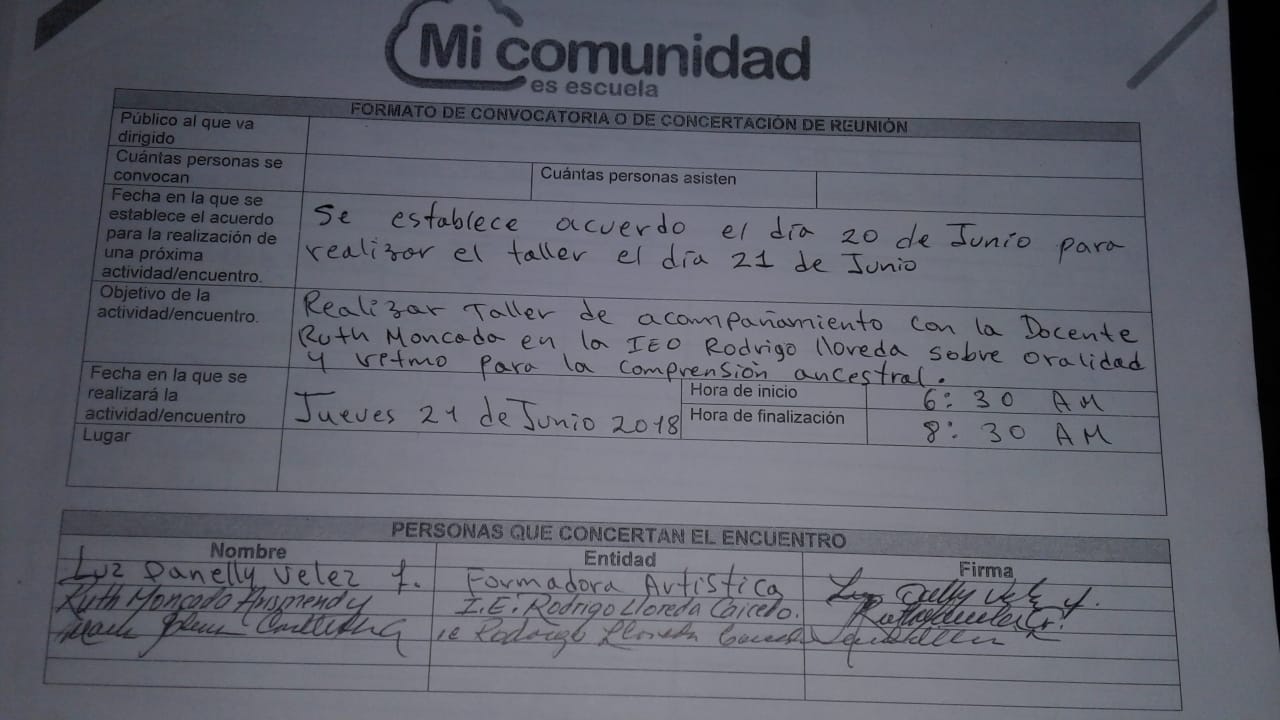 Mi comunidad
es escuela
FORMATO DE CONVOCATORIA O DE CONCERTACIÓN DE REUNIÓN
Público al que va
dirigido
Cuántas personas se
convocan
Cuántas personas asisten
Fecha en la que se
establece el acuerdo
para la realización de
una próxima
actividad/encuentro.
Se establece acuerdo el día 20 de Junio para
realizar el taller el día 21 de Junio
Objetivo de la
actividad/encuentro.
Realizar Taller de acompañamiento con la Docente
Ruth Moncada en la IEO Rodrigo lloreda sobre oralidad
y ritmo para la comprensión ancestral.
Fecha en la que se
realizará la
actividad/encuentro
Jueves 21 de Junio 2018
Hora de inicio
6:30 AM
Hora de finalización
8:30 AM
Lugar
PERSONAS QUE CONCERTAN EL ENCUENTRO
Nombre
Entidad
Firma
Luz Danelly Velez f.
Formadora Artística
Ruth Moncada Arismendy
I.E. Rodrigo Lloreda Caicedo.
ie Rodrigo Lloreda